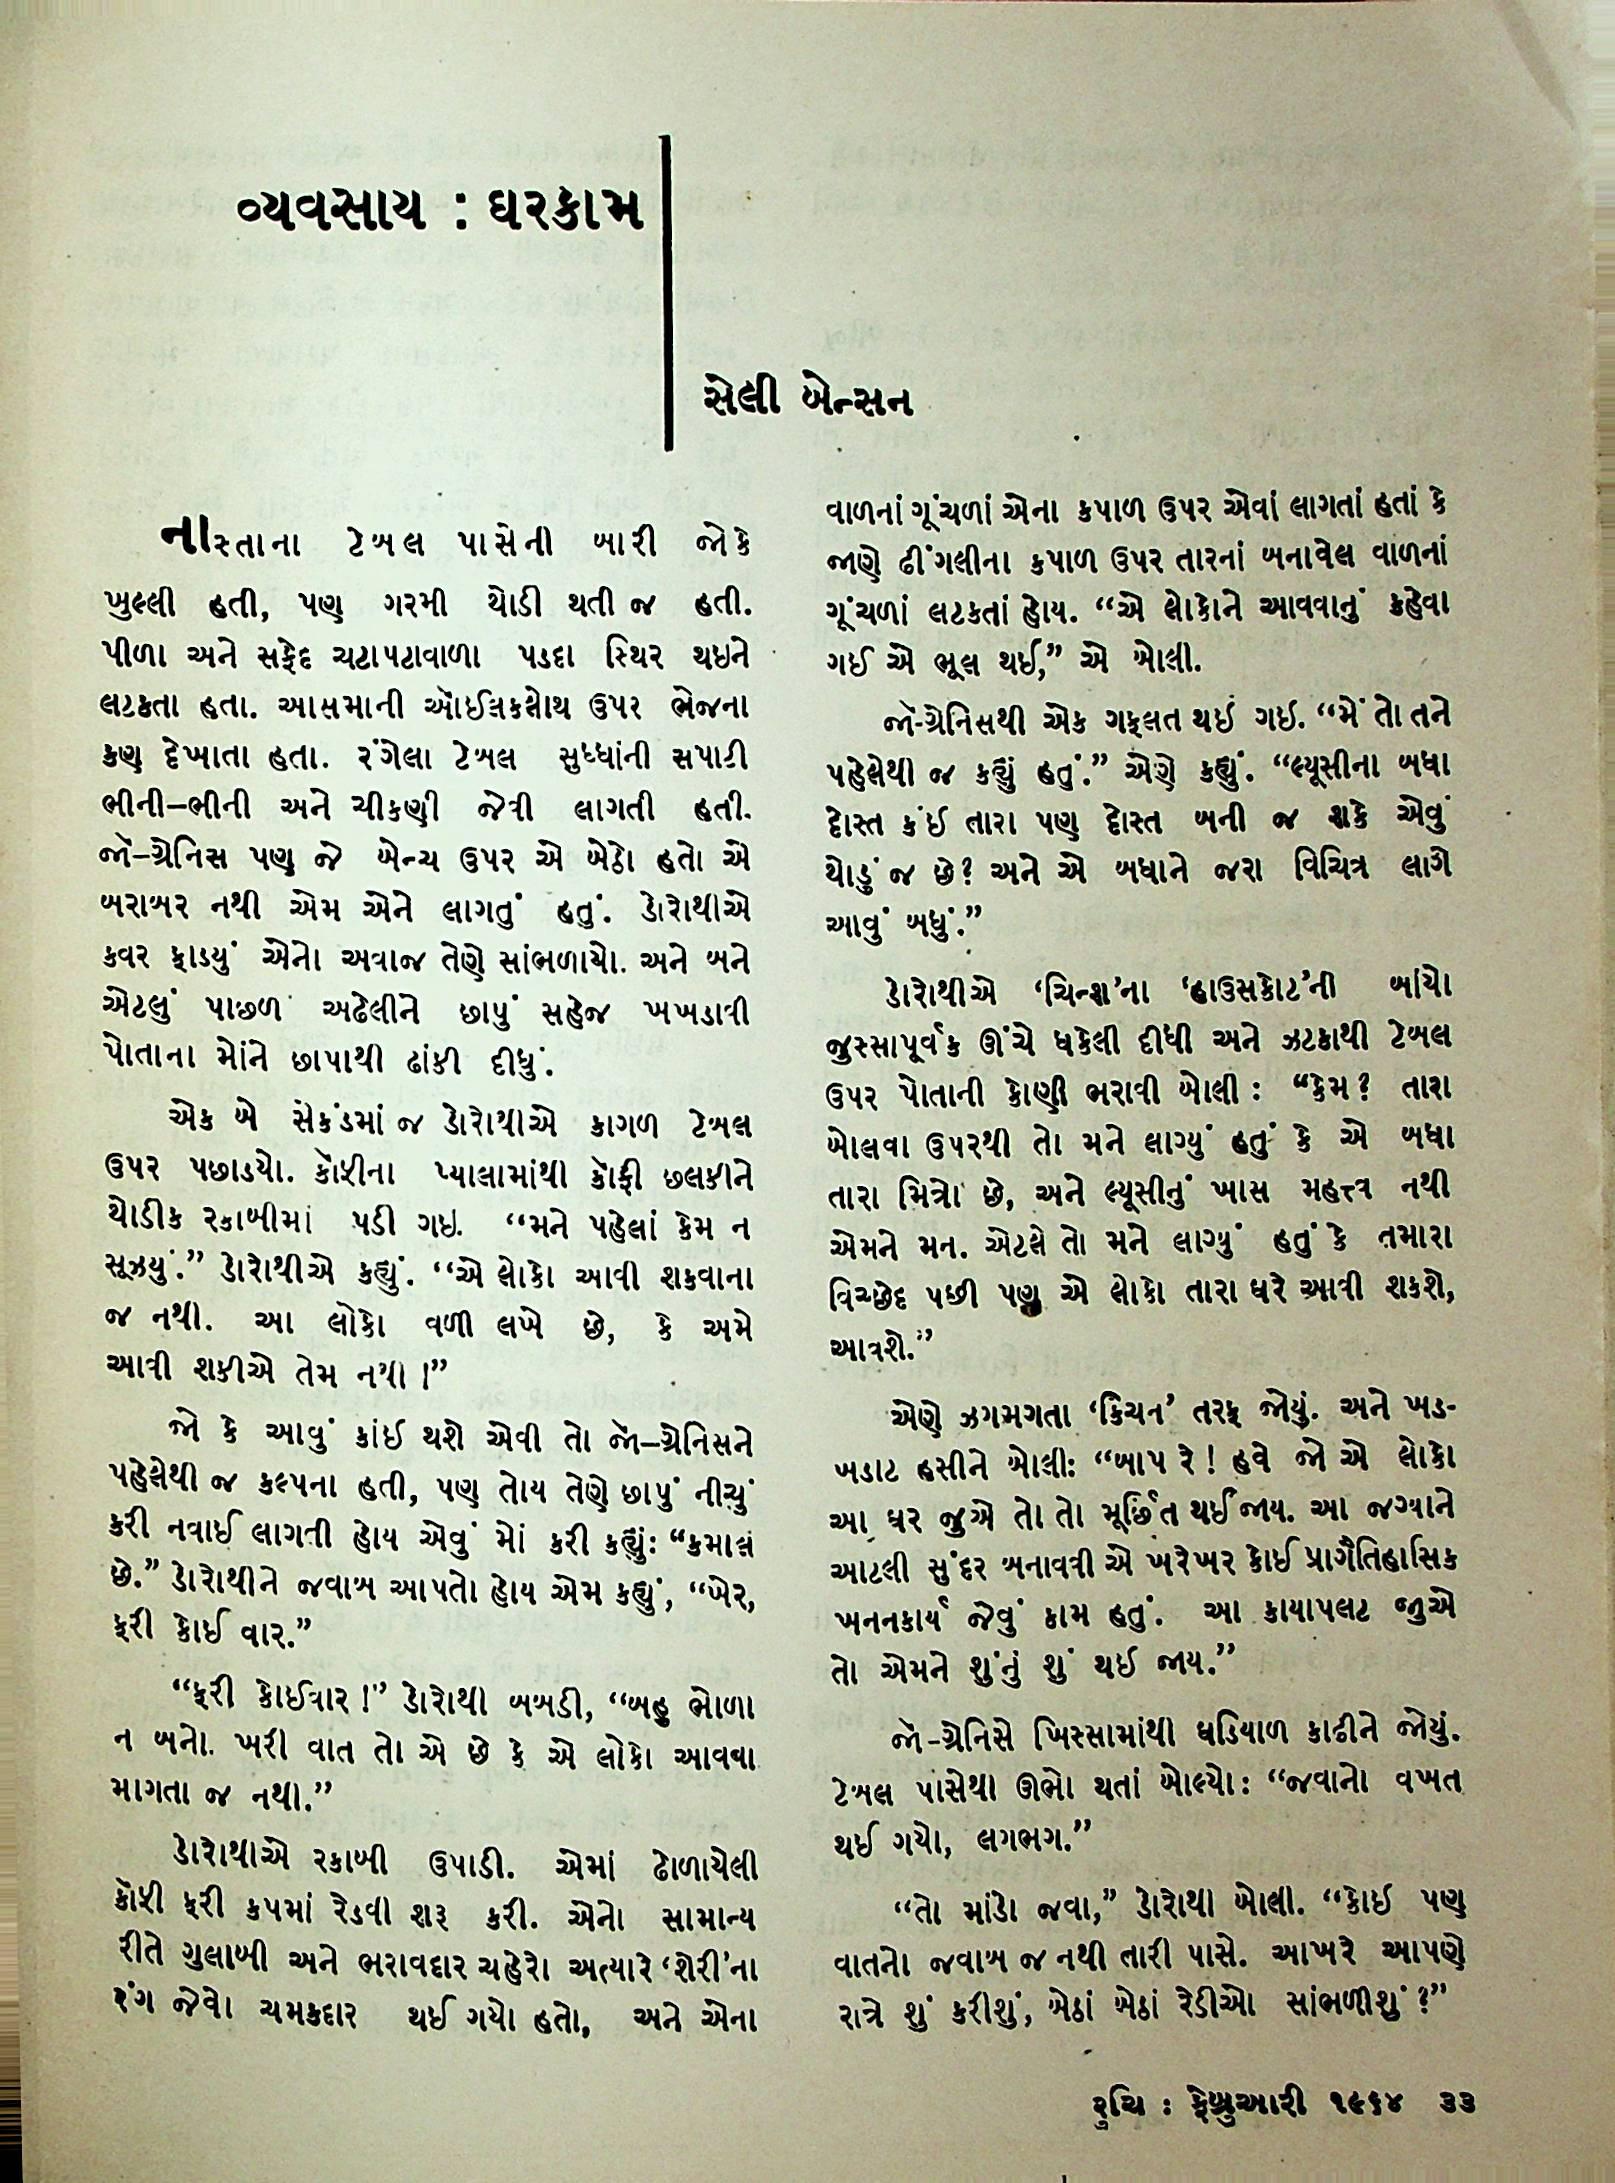 વ્યવસાય : ઘરકામ
સેલી બેન્સન
નાસ્તાના ટેબલ પાસેની બારી જોકે
ખુલ્લી હતી, પણ ગરમી થોડી થતી જ હતી.
પીળા અને સફેદ ચટાપટાવાળા પડદા સ્થિર થઇને
લટકતા હતા. આસમાની ઑઈલકલોથ ઉપર ભેજના
કણ દેખાતા હતા. રંગેલા ટેબલ સુધ્ધાંની સપાટી
ભીની–ભીની અને ચીકણી જેવી લાગતી હતી.
જૉ–ગ્રેનિસ પણ જે બેન્ચ ઉપર એ બેઠો હતો એ
બરાબર નથી એમ એને લાગતું હતું. ડોરોથીએ
કવર ફાડયું એનો અવાજ તેણે સાંભળાયો. અને બને
એટલું પાછળ અઢેલીને છાપું સહેજ ખખડાવી
પોતાના મોંને છાપાથી ઢાંકી દીધું.
એક બે સેકંડમાં જ ડોરોથીએ કાગળ ટેબલ
ઉપર પછાડયો. કૉફીના પ્યાલામાંથી કૉફી છલકીને
થોડીક રકાબીમાં પડી ગઇ. “મને પહેલાં કેમ ન
સૂઝયું.” ડોરોથીએ કહ્યું. “એ લોકો આવી શકવાના
જ નથી. આ લોકો વળી લખે છે, કે અમે
આવી શકીએ તેમ નથી !”
જો કે આવું કાંઈ થશે એવી તો જૉ–ગ્રેનિસને
પહેલેથી જ કલ્પના હતી, પણ તોય તેણે છાપું નીચું
કરી નવાઈ લાગતી હોય એવું મોં કરી કહ્યું: “કમાલ
છે.” ડોરોથીને જવાબ આપતો હોય એમ કહ્યું, “ખેર,
ફરી કોઈ વાર.”
“ફરી કોઈવાર !” ડોરોથી બબડી, “બહુ ભોળા
ન બનો. ખરી વાત તો એ છે કે એ લોકો આવવા
માગતા જ નથી.”
ડોરોથીએ રકાબી ઉપાડી. એમાં ઢોળાયેલી
કૉફી ફરી કપમાં રેડવી શરૂ કરી. એનો સામાન્ય
રીતે ગુલાબી અને ભરાવદાર ચહેરો અત્યારે ‘શેરી’ના
રંગ જેવો ચમકદાર થઈ ગયો હતો, અને એના
વાળનાં ગૂંચળાં એના કપાળ ઉપર એવાં લાગતાં હતાં કે
જાણે ઢીંગલીના કપાળ ઉપર તારનાં બનાવેલ વાળનાં
ગૂંચળાં લટકતાં હોય. “એ લોકોને આવવાનું કહેવા
ગઈ એ ભૂલ થઈ,” એ બોલી.
જૉ-ગ્રેનિસથી એક ગફલત થઈ ગઈ. “મેં તો તને
પહેલેથી જ કહ્યું હતું.” એણે કહ્યું. “લ્યૂસીના બધા
દોસ્ત કંઈ તારા પણ દોસ્ત બની જ શકે એવું
થોડું જ છે? અને એ બધાને જરા વિચિત્ર લાગે
આવું બધું.”
ડોરોથીએ ‘ચિન્ઝ’ના ‘હાઉસકોટ’ની બાંયો
જુસ્સાપૂર્વક ઊંચે ધકેલી દીધી અને ઝટકાથી ટેબલ
ઉપર પોતાની કોણી ભરાવી બોલી : “કેમ? તારા
બોલવા ઉપરથી તો મને લાગ્યું હતું કે એ બધા
તારા મિત્રો છે, અને લ્યૂસીનું ખાસ મહત્ત્વ નથી
એમને મન. એટલે તો મને લાગ્યું હતું કે તમારા
વિચ્છેદ પછી પણ એ લોકો તારા ઘરે આવી શકશે,
આવશે.”
એણે ઝગમગતા ‘કિચન’ તરફ જોયું. અને ખડ-
ખડાટ હસીને બોલી: “બાપ રે ! હવે જો એ લોકો
આ ઘર જુએ તો તો મૂર્છિત થઈ જાય. આ જગ્યાને
આટલી સુંદર બનાવવી એ ખરેખર કોઈ પ્રાગૈતિહાસિક
ખનનકાર્ય જેવું કામ હતું. આ કાયાપલટ જુએ
તો એમને શુંનું શું થઈ જાય.”
જૉ-ગ્રેનિસે ખિસ્સામાંથી ઘડિયાળ કાઢીને જોયું.
ટેબલ પાસેથી ઊભો થતાં બોલ્યો : “જવાનો વખત
થઈ ગયો, લગભગ.”
“તો માંડો જવા,” ડોરોથી બોલી. “કોઈ પણ
વાતનો જવાબ જ નથી તારી પાસે. આખરે આપણે
રાત્રે શું કરીશું, બેઠાં બેઠાં રેડીઓ સાંભળીશું ?”
રુચિ : ફેબ્રુઆરી ૧૯૬૪ ૩૩